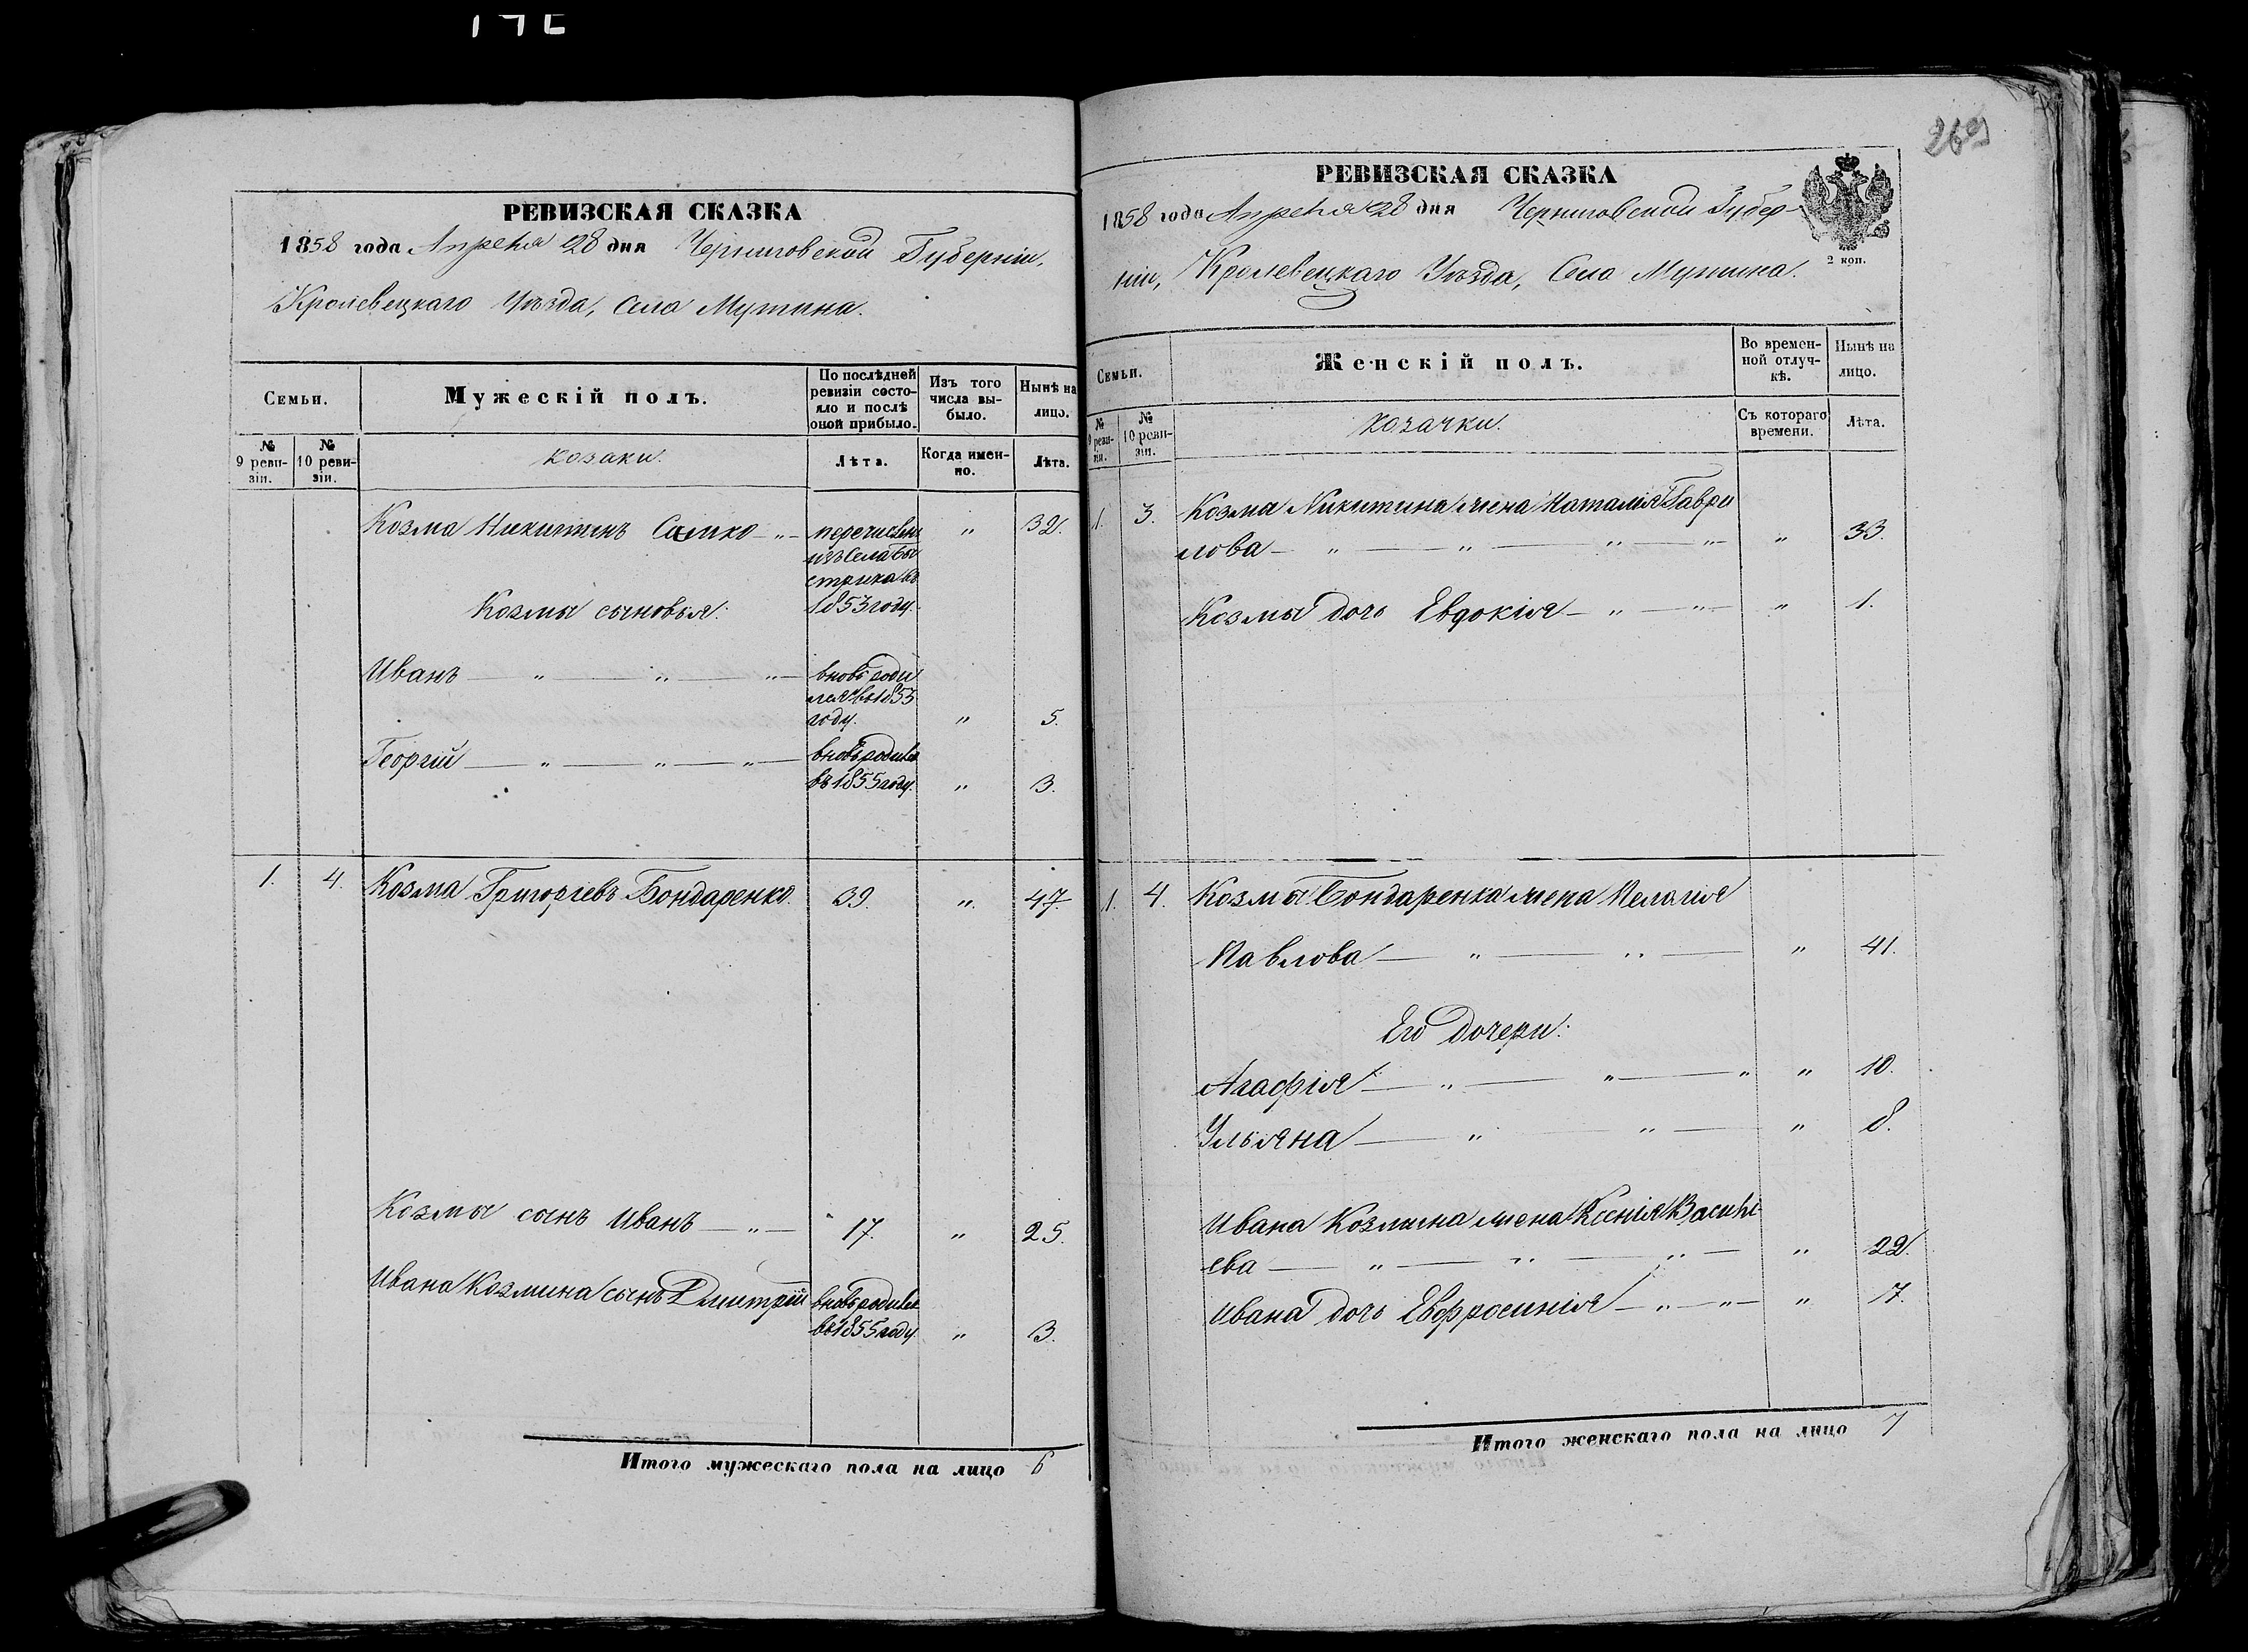 РЕВИЗСКАЯ СКАЗКА
1858 года Апреля 28 дня Черниговской Губерніи,
Кролевецкаго Уѣзда, Села Мутина.
Семьи.
Мужескій полъ.
По послѣдней
ревизіи состо-
яло и послѣ
оной прибыло.
Изъ того
числа вы-
было.
Нынѣ на
лицо.
№
9 реви-
зіи.
№
10 реви-
зіи.
козаки.
Лѣта.
Когда имен-
но.
Лѣта.
Козма Никитинъ Самко —„— перечислен „ 32.
изъ Села Бы
стрика въ
Козмы сыновья: 1853 году.
Иванъ — „ — „ — „ — вновь роди
лся въ 1853
году. „ 5.
Георгій — „ — „ — „ — вновь родился
въ 1855 году. „ 3.
1. 4. Козма Григоріевъ Бондаренко. 39. „. 47.
Козмы сынъ Иванъ — „ — 17. „ 25.
Ивана Козмина сынъ Дмитрій вновь родился
въ 1855 году „ 3.
Итого мужескаго пола на лицо 6
269
РЕВИЗСКАЯ СКАЗКА
1858 года Апреля 28 дня Черниговской Губер-
ніи, Кролевецкаго Уѣзда, Села Мутина.
2 коп.
Семьи.
Женскій полъ.
Во времен-
ной отлуч-
кѣ.
Нынѣ на
лицо.
№
9 реви-
зіи.
№
10 реви-
зіи.
козачки.
Съ котораго
времени.
Лѣта.
1. 3. Козма Никитина жена Наталія Гаври
лова — „ — „ — „ — „ — „ 33.
Козмы дочь Евдокія — „ — „ — „ 1.
1. 4. Козмы Бондаренка жена Пелагия
Павлова — „ — „ — „ 41.
Его дочери:
Агафія — „ — „ — „ „ 10.
Ульяна — „ — „ — „ 8.
Ивана Козмина жена Ксенія Василь
ева — „ — „ — „ — „ 22.
Ивана дочь Евфросинія — „ — „ — „ 7.
Итого женскаго пола на лицо 7